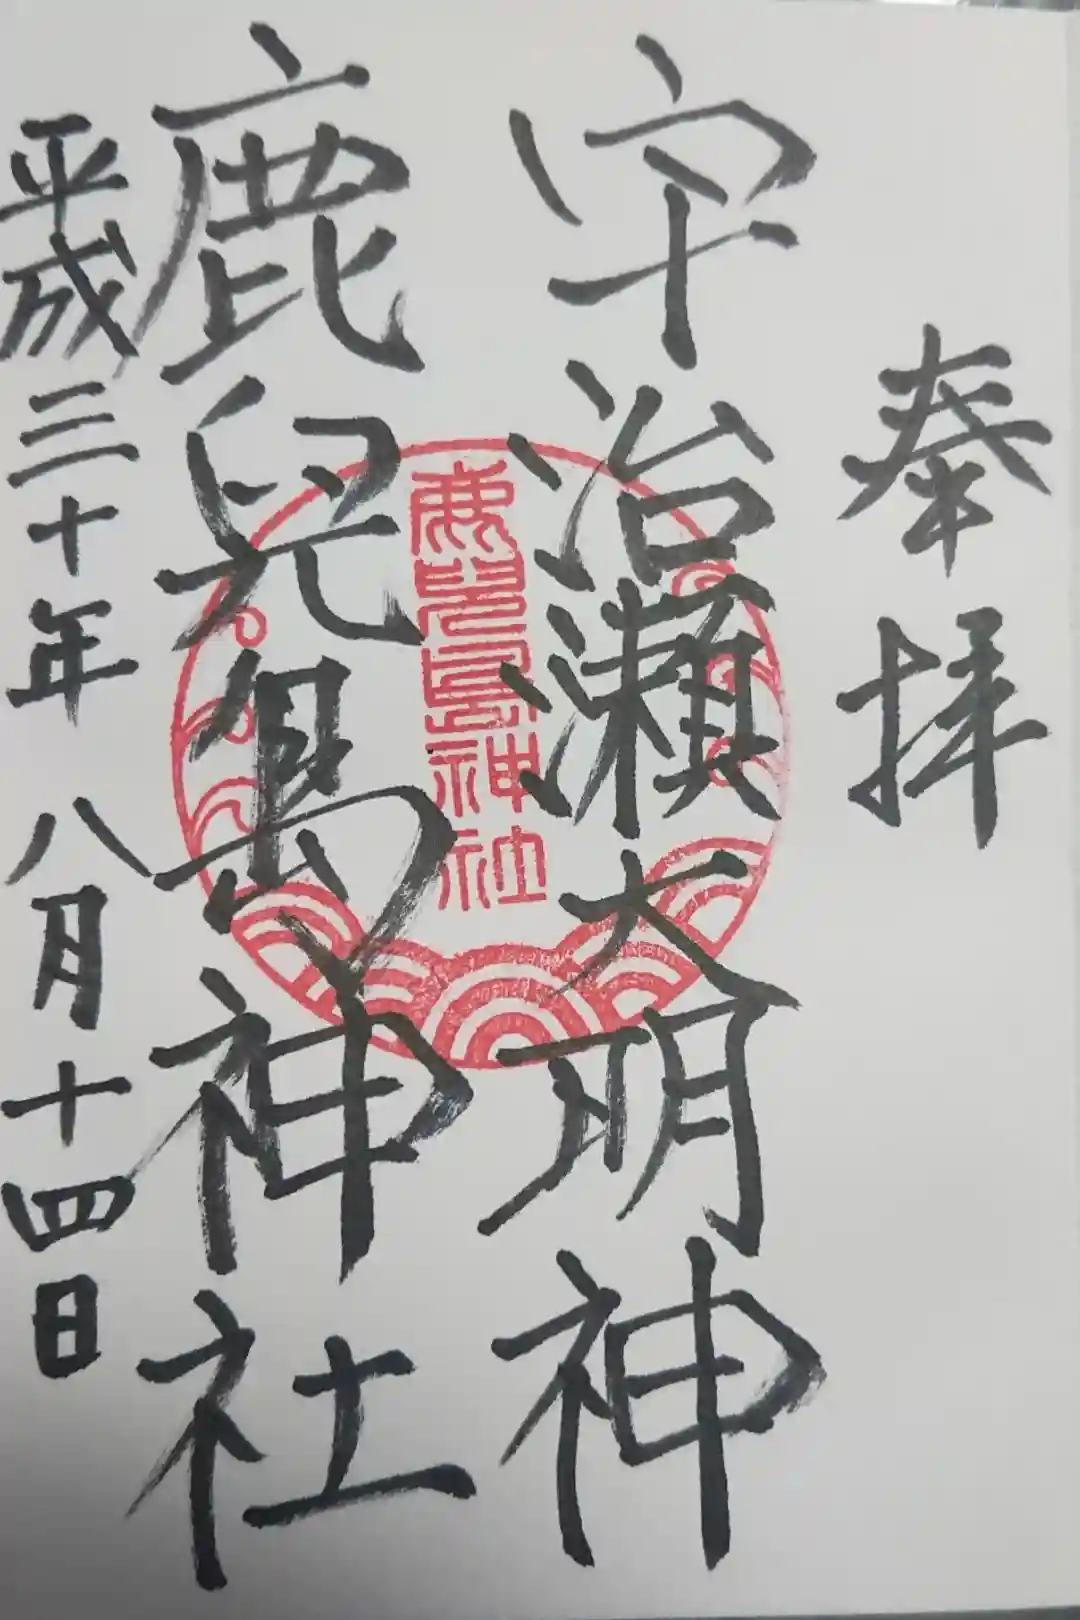 奉拝
宇治瀬大明神
鹿児島神社
鹿兒嶋神社
平成三十年 八月十四日